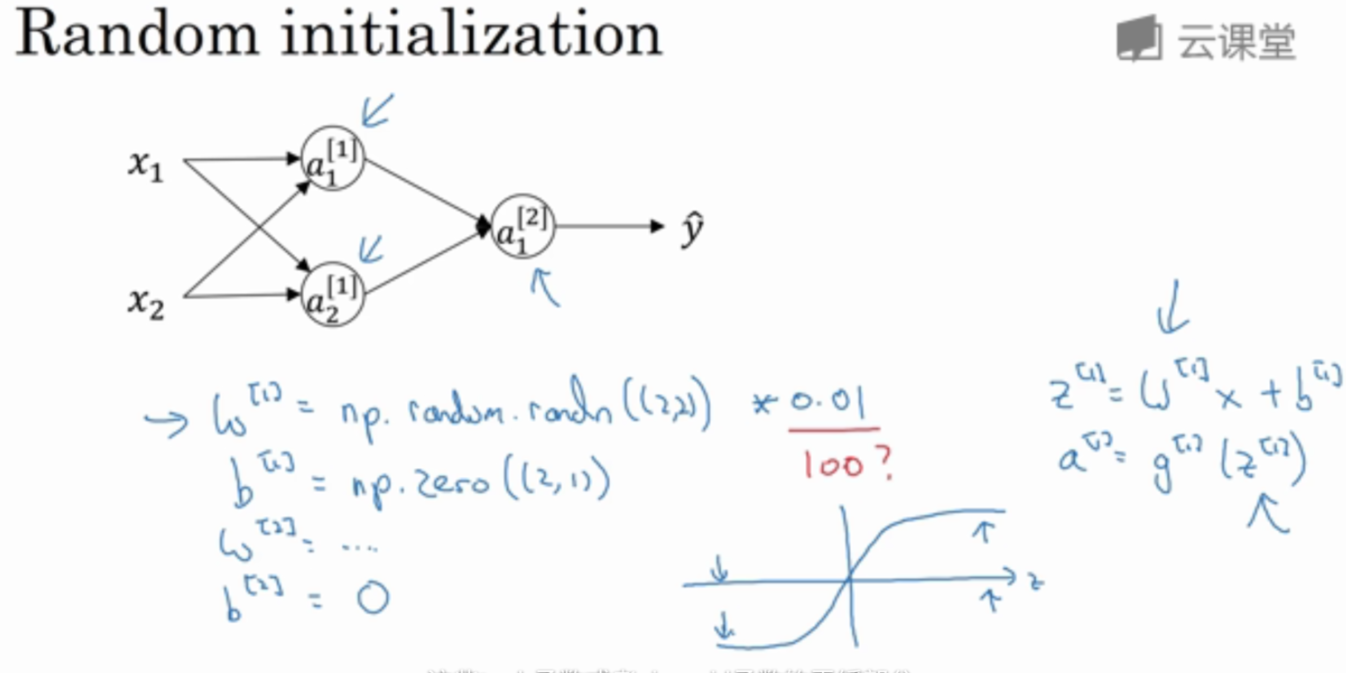 Random initialization
云课堂
x₁ a₁^[1]
a₁^[2] ŷ
x₂ a₂^[1]
→ W^[1] = np.random.randn((2,2)) * 0.01
100?
b^[1] = np.zero((2,1))
W^[2] = ....
b^[2] = 0
z^[1] = W^[1] x + b^[1]
a^[1] = g^[1](z^[1])
z